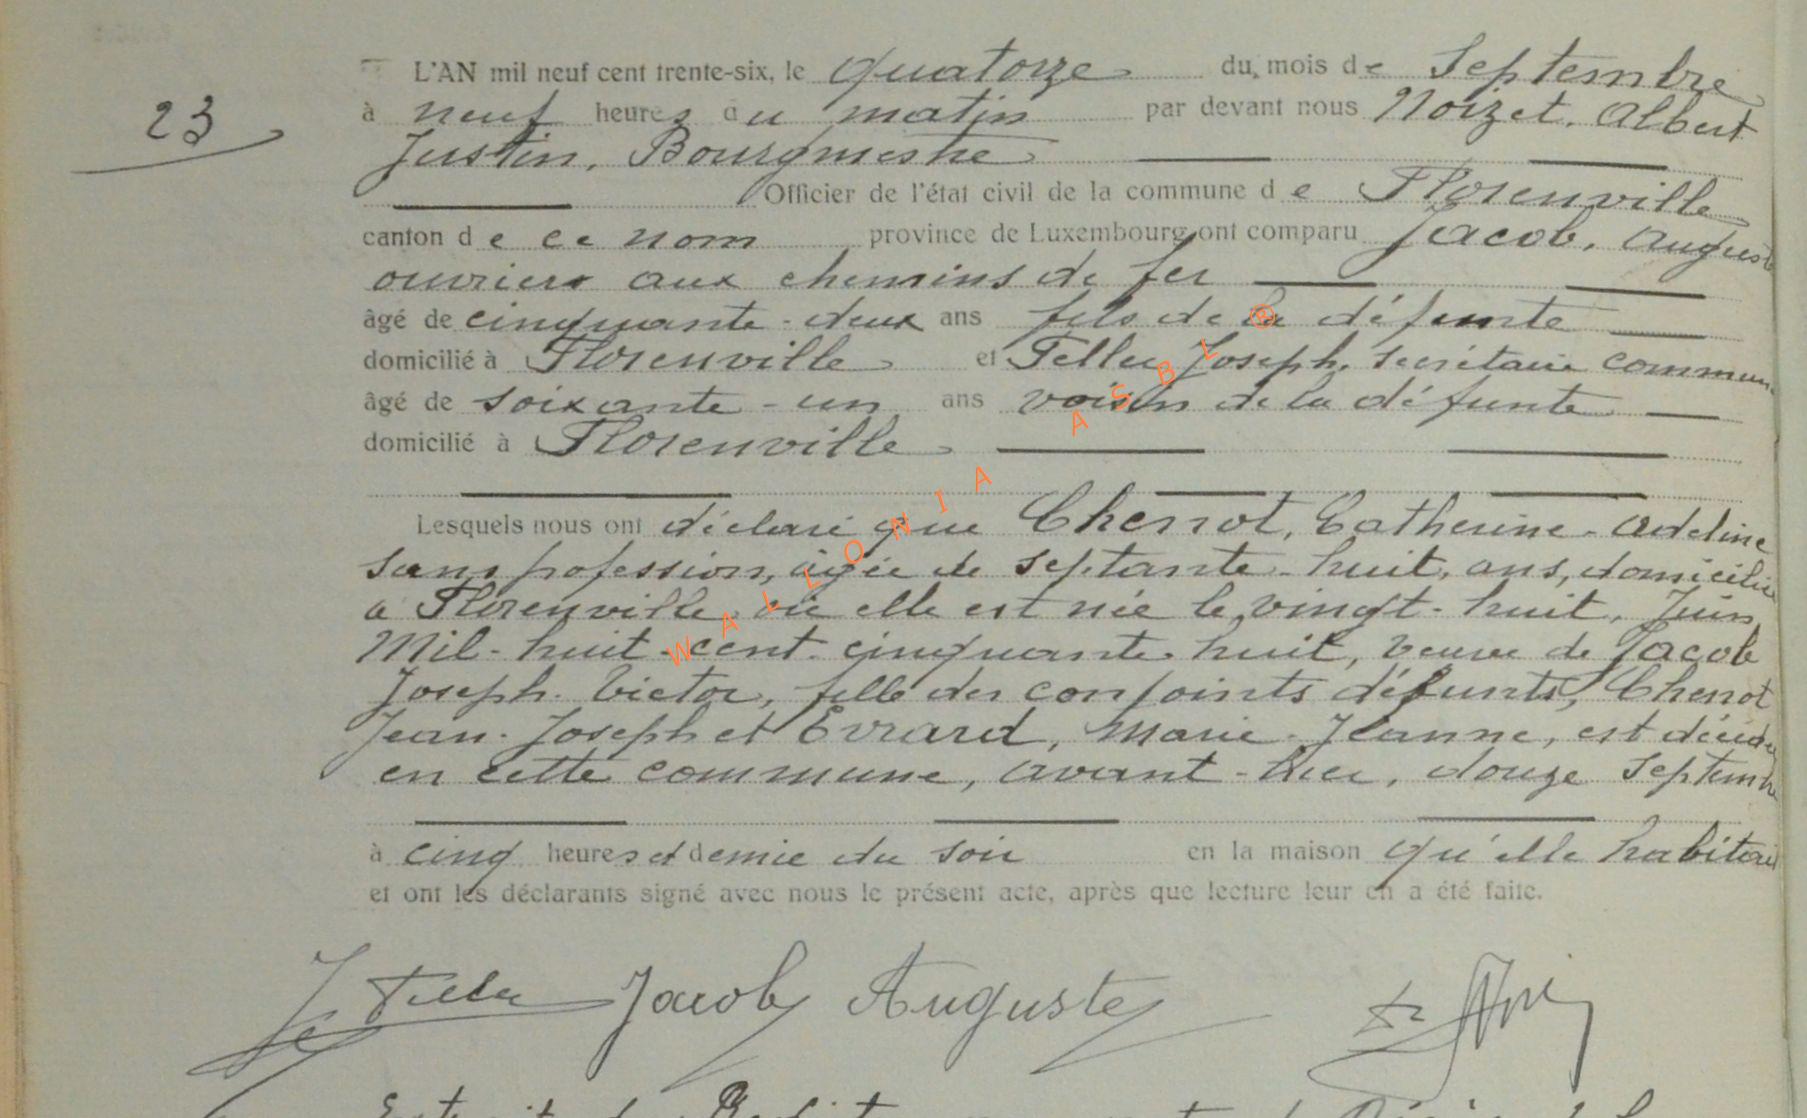 23
L'AN mil neuf cent trente-six, le quatorze du mois de Septembre
à neuf heures du matin par devant nous Noizet, Albert
Justin, Bourgmestre
Officier de l'état civil de la commune de Florenville
canton de ce nom province de Luxembourg ont comparu Jacob, Auguste
ouvrier aux chemins de fer
âgé de cinquante-deux ans fils de la défunte
domicilié à Florenville et Feller Joseph, secrétaire commun
âgé de soixante-un ans voisin de la défunte
domicilié à Florenville
Lesquels nous ont déclaré que Chenot, Catherine-Adeline
sans profession, âgée de septante-huit, ans, domiciliée
à Florenville où elle est née le vingt-huit, Juin
Mil-huit-cent-cinquante huit, veuve de Jacob
Joseph-Victor, fille des conjoints défunts, Chenot
Jean-Joseph et Evrard, Marie-Jeanne, est décédée
en cette commune, avant-hier, douze Septembre
à cinq heures et demie du soir en la maison qu'elle habitait
et ont les déclarants signé avec nous le présent acte, après que lecture leur en a été faite.
J Feller Jacob Auguste
WALLONIA ASBL ®